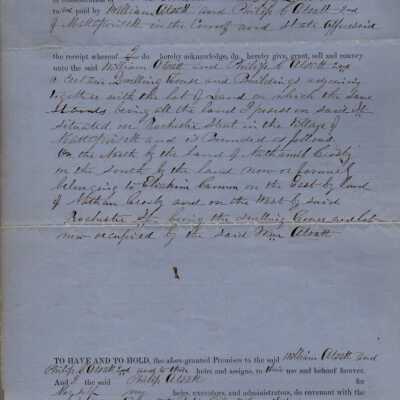 paid by William Atsatt and Philip Atsatt 2nd
of Mattapoisett in the County and State aforesaid
the receipt whereof I do hereby acknowledge, do, hereby give, grant, sell and convey
unto the said William Atsatt and Philip Atsatt 2nd
a certain Dwelling House and Buildings adjoining
together with the lot of Land on which the same
Stands being all the land I possess on said St
situated on Rochester Street in the Village of
Mattapoisett and is Bounded as follows
On the North by the land of Nathaniel Crosby
on the South by the land now or formerly
belonging to Cannon on the East by land
of Nathan Crosby and on the West by said
Rochester St. being the dwelling house and lot
now occupied by the said Wm Atsatt
TO HAVE AND TO HOLD, the above-granted Premises to the said William Atsatt and
Philip Atsatt 2nd and to their heirs and assigns, to their use and behoof forever.
And I the said Philip Atsatt for
Myself my heirs, executors, and administrators, do covenant with the